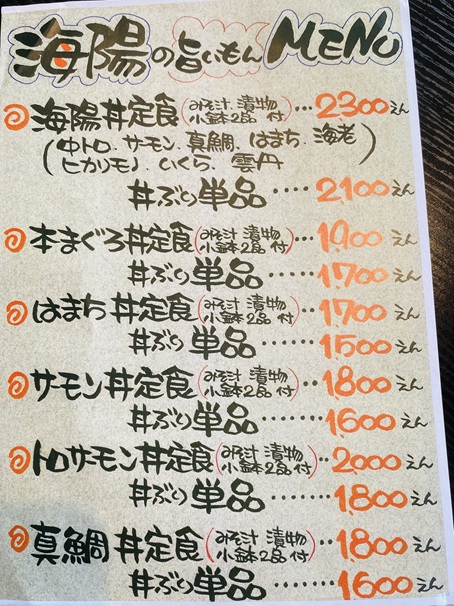 海陽の旨いもん MENU
海陽丼定食(みそ汁 漬物 小鉢2品 付)…2300えん
(中トロ、サーモン、真鯛、はまち、海老
ヒカリモノ、いくら、雲丹)
丼ぶり単品……2,100えん
本まぐろ丼定食(みそ汁 漬物 小鉢2品 付)…1,900えん
丼ぶり単品……1,700えん
はまち丼定食(みそ汁 漬物 小鉢2品 付)…1,700えん
丼ぶり単品……1,500えん
サーモン丼定食(みそ汁 漬物 小鉢2品 付)…1,800えん
丼ぶり単品……1,600えん
トロサーモン丼定食(みそ汁 漬物 小鉢2品 付)…2,000えん
丼ぶり単品……1,800えん
真鯛丼定食(みそ汁 漬物 小鉢2品 付)…1,800えん
丼ぶり単品……1,600えん